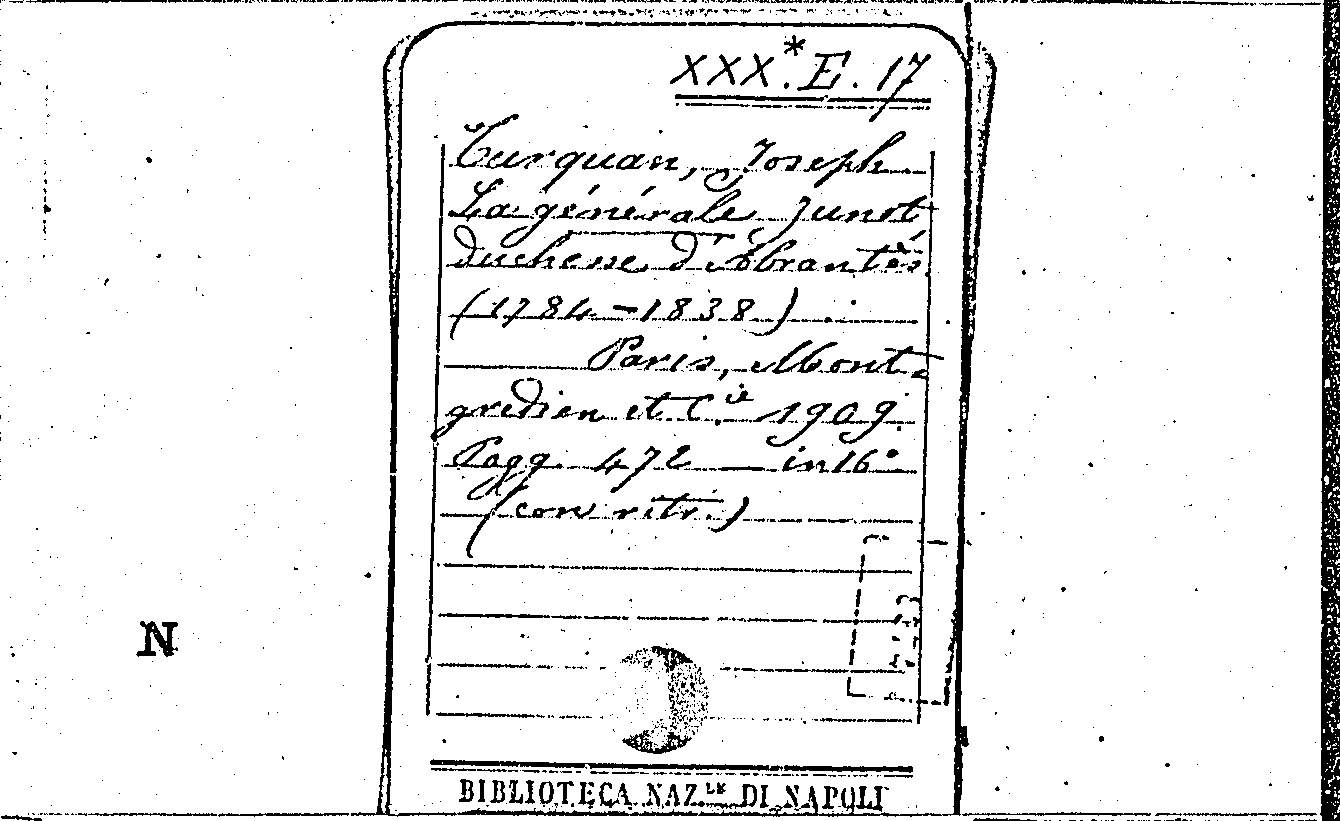 XXX.* E. 17
Turquan, Joseph
La générale Junot
duchesse d'Abrantès
(1784-1838).
Paris, Mont-
gredien et C.ie 1909.
Pagg. 472 — in 16°
(con ritr.)
N
BIBLIOTECA NAZ.LE DI NAPOLI